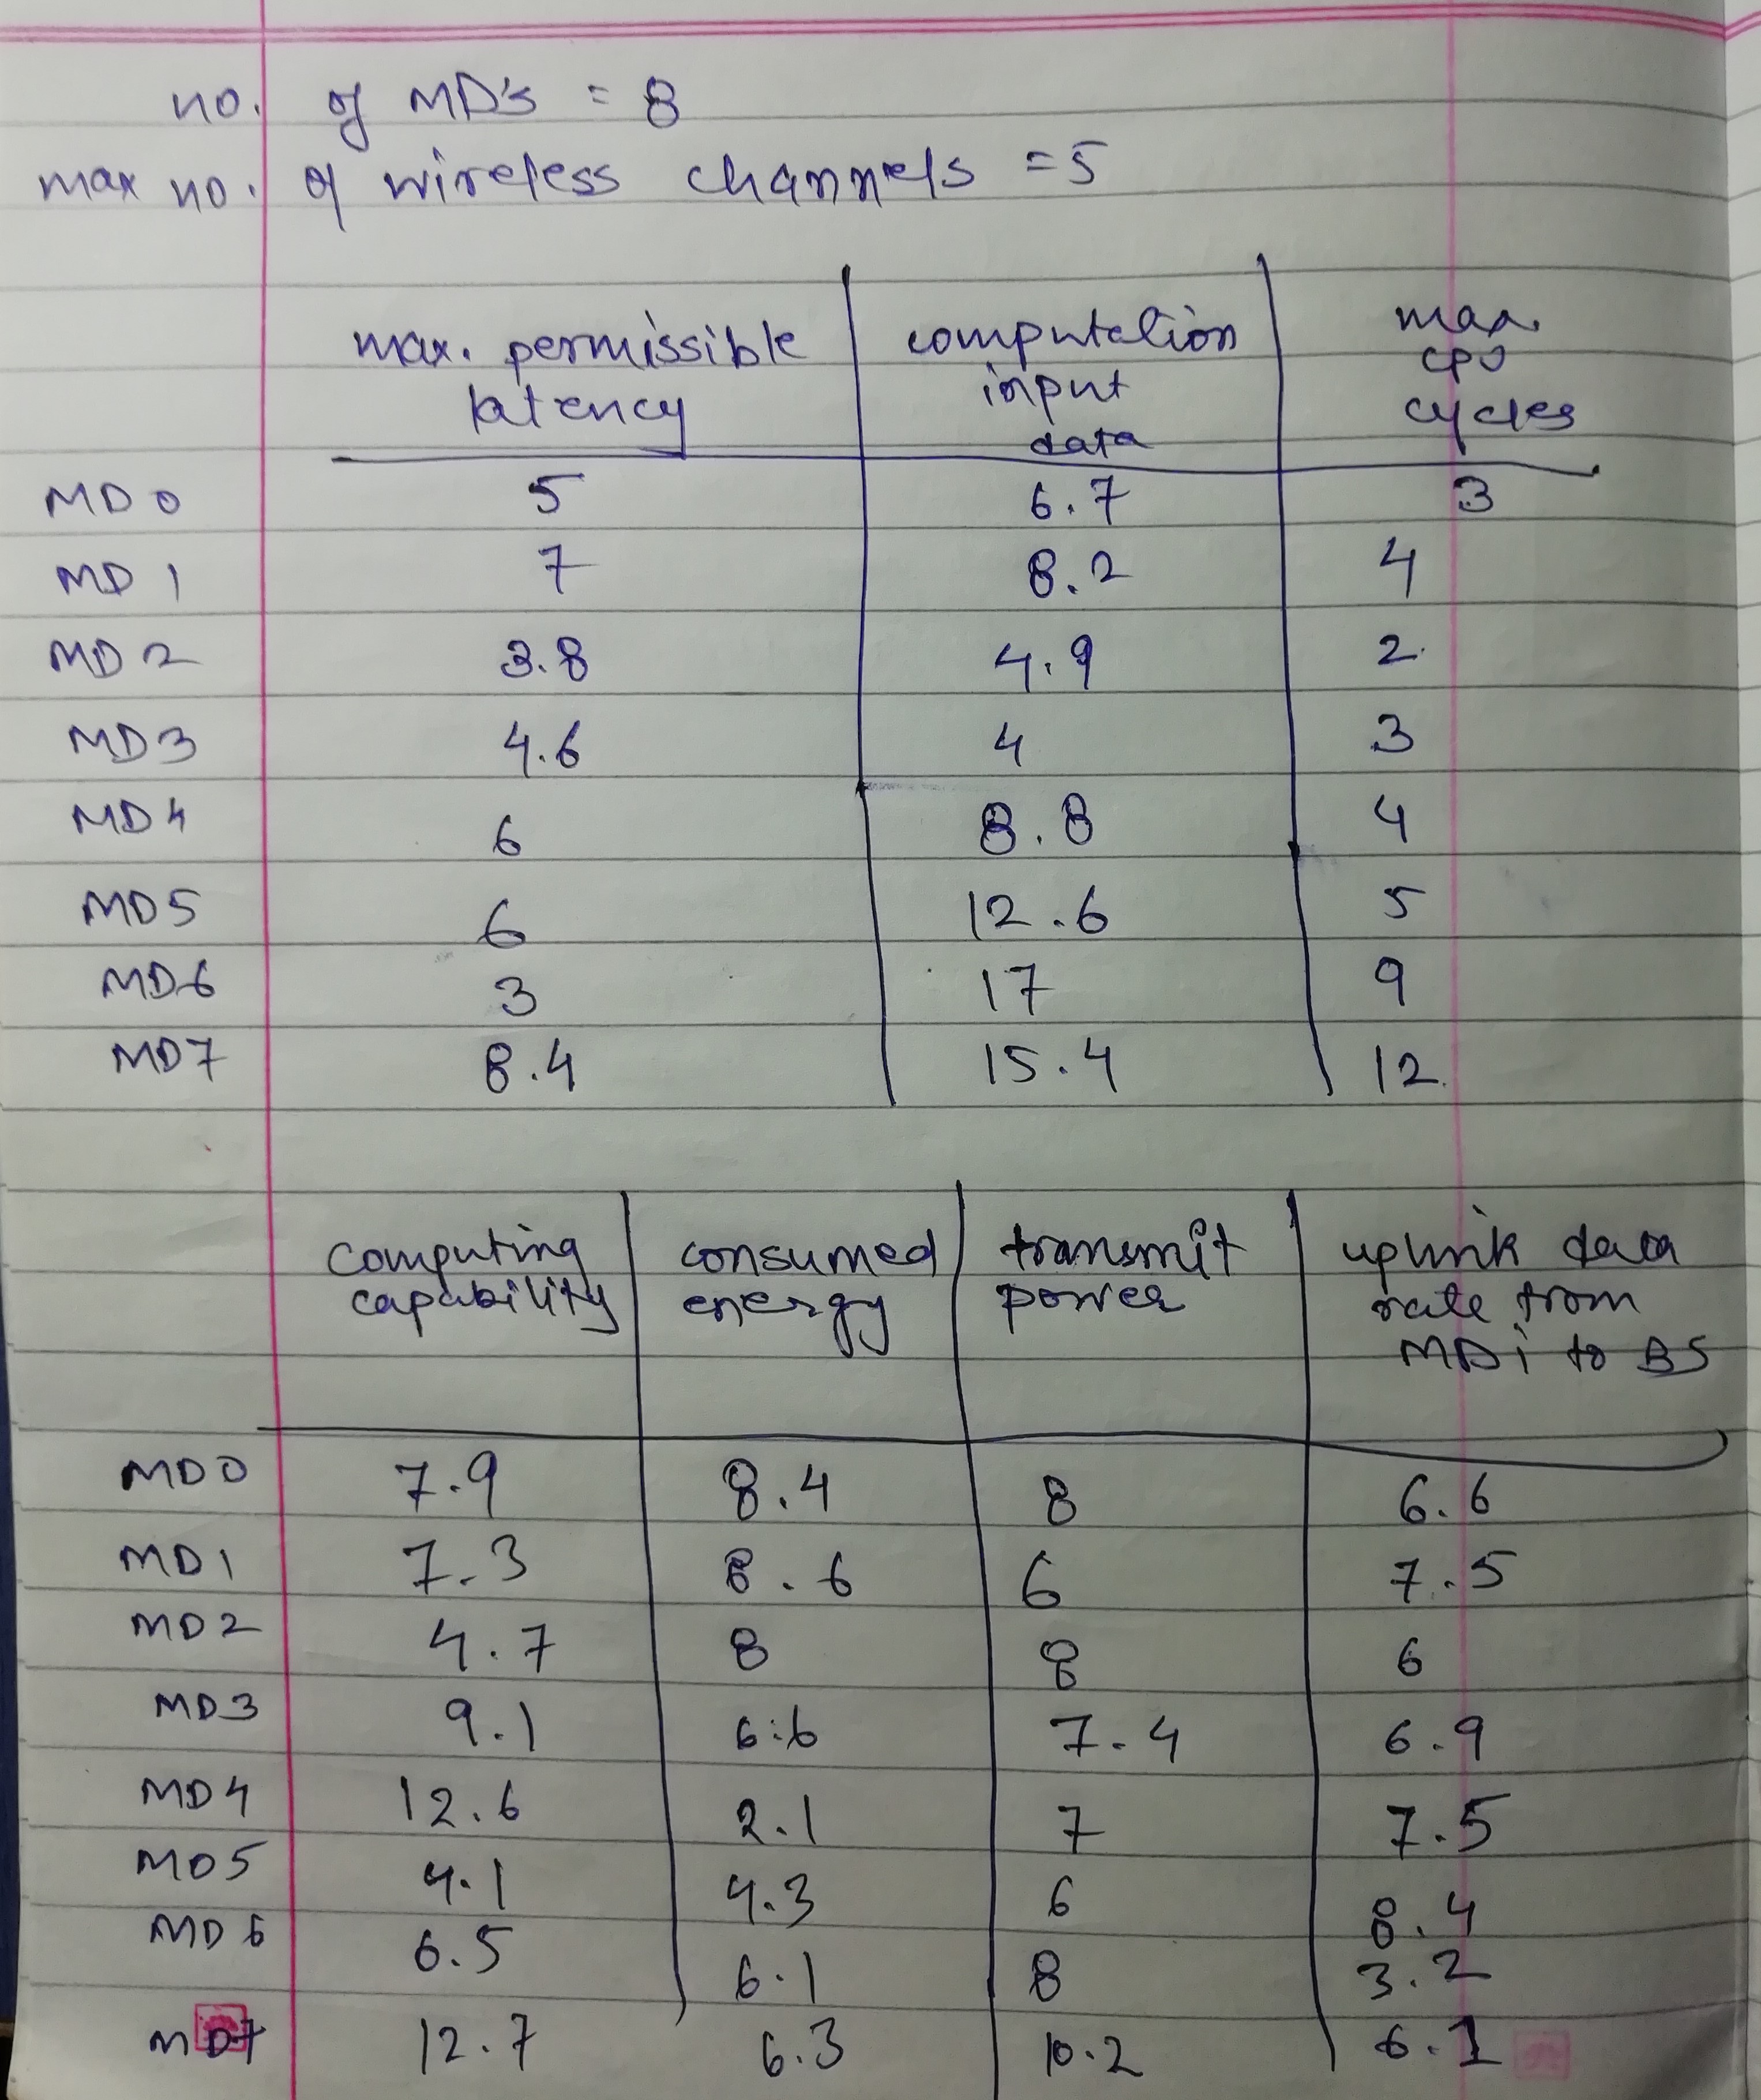 no. of MD's = 8
max no. of wireless channels = 5
max. permissible latency | computation input data | max. CPU cycles
MD 0 5 6.7 3
MD 1 7 8.2 4
MD 2 3.8 4.9 2
MD3 4.6 4 3
MD4 6 8.8 4
MD5 6 12.6 5
MD6 3 17 9
MD7 8.4 15.4 12
computing capability | consumed energy | transmit power | uplink data rate from MDi to BS
MD0 7.9 8.4 8 6.6
MD1 7.3 8.6 6 7.5
MD2 4.7 8 8 6
MD3 9.1 6.6 7.4 6.9
MD4 12.6 2.1 7 7.5
MD5 4.1 4.3 6 8.4
MD6 6.5 6.1 8 3.2
MD7 12.7 6.3 10.2 6.1